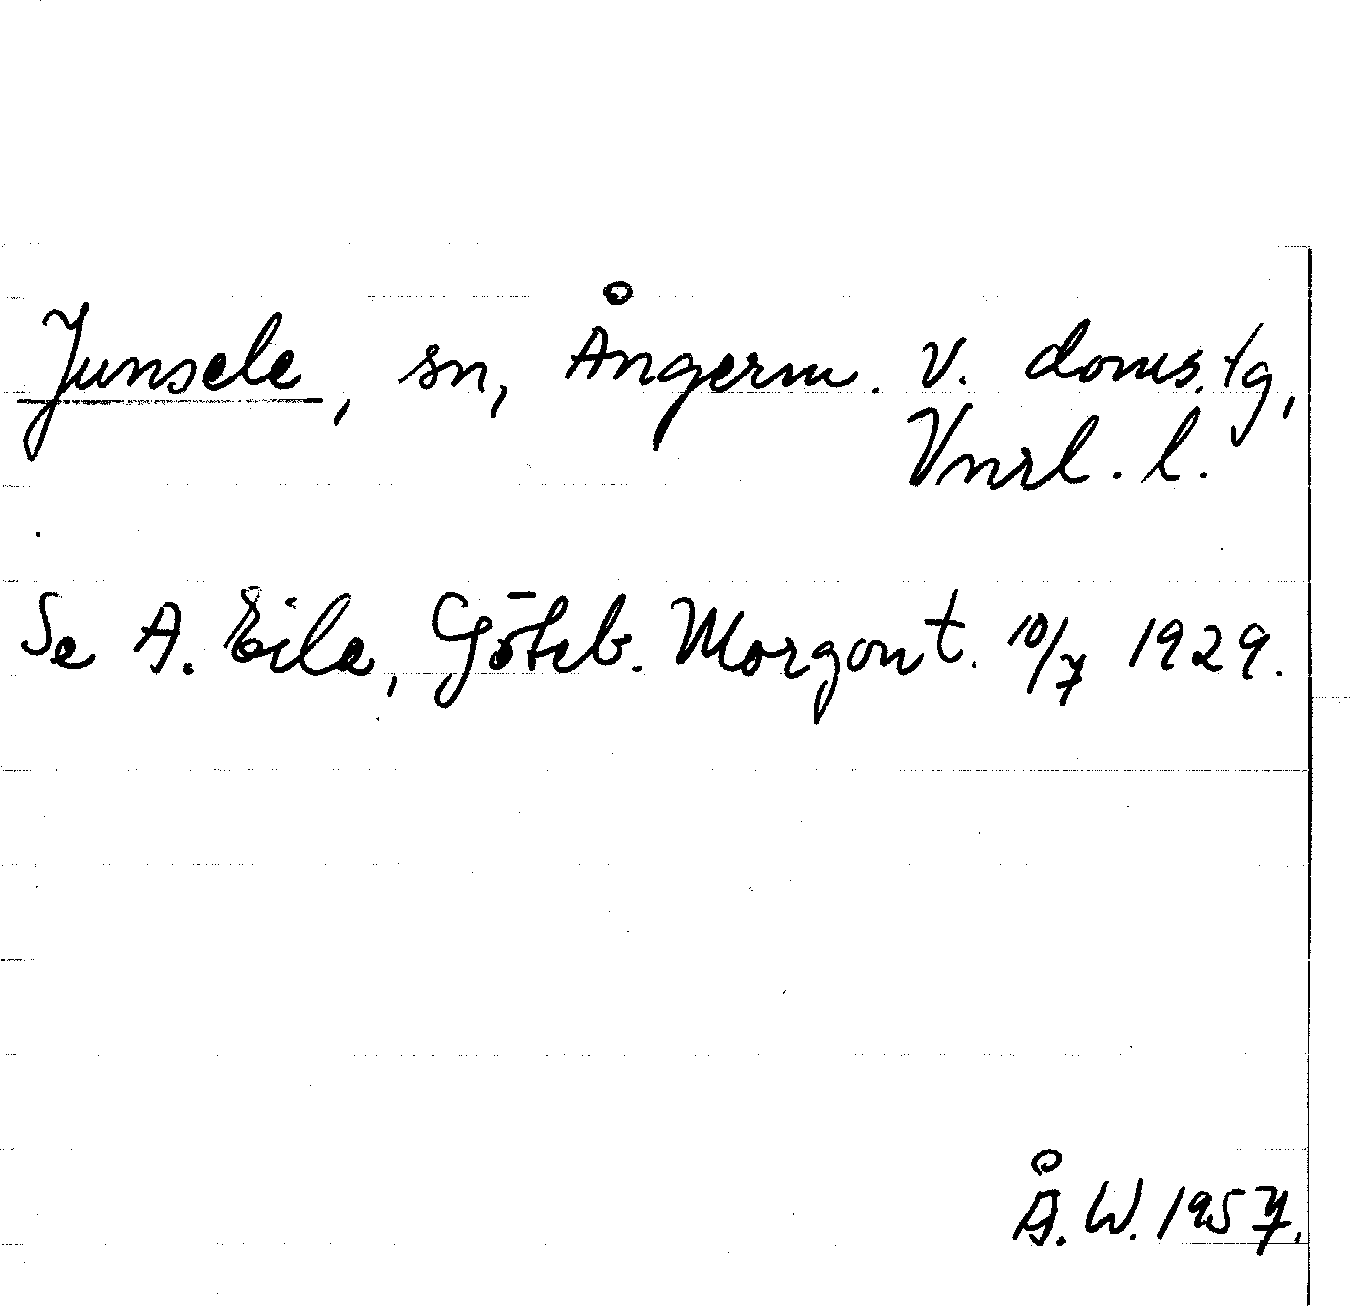 Junsele, sn, Ångerm. v. doms.tg,
Vnrl. l.
Se A. Eile, Göteb. Morgont. 10/7 1929.
Å. W. 1957.